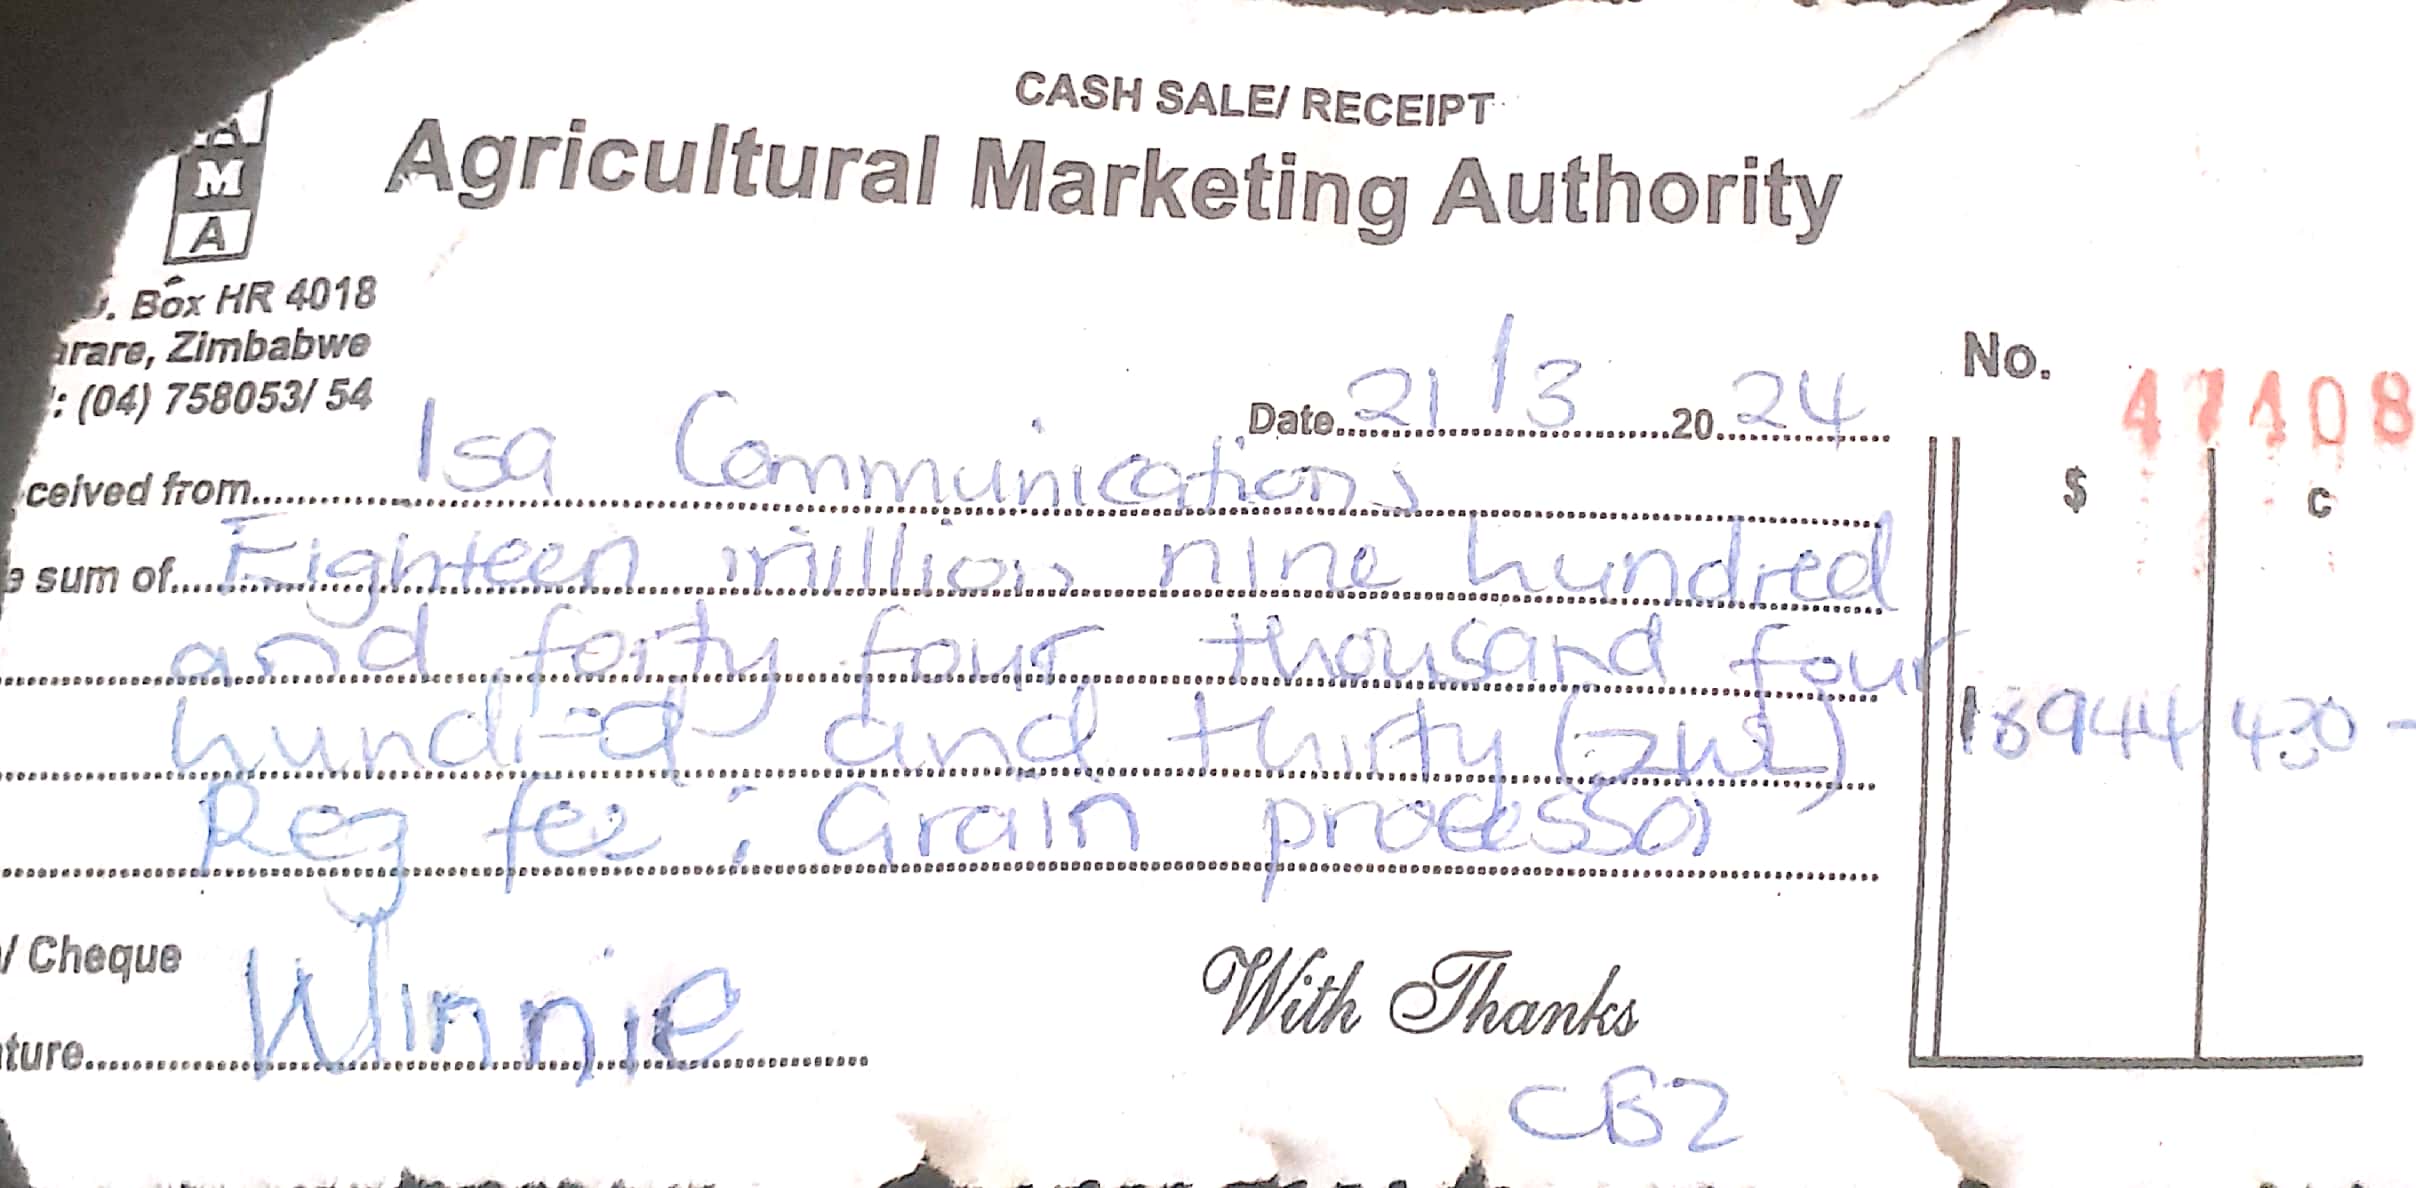 CASH SALE/ RECEIPT
Agricultural Marketing Authority
A
M
A
. Box HR 4018
arare, Zimbabwe
: (04) 758053/ 54
No. 47408
Date 21/3 20 24
ceived from Isa Communications
$ c
e sum of Eighteen million nine hundred
and forty four thousand four
hundred and thirty (ZWL) 18944 430 -
Reg fee : Grain processor
/ Cheque
ture Winnie
With Thanks
CBZ